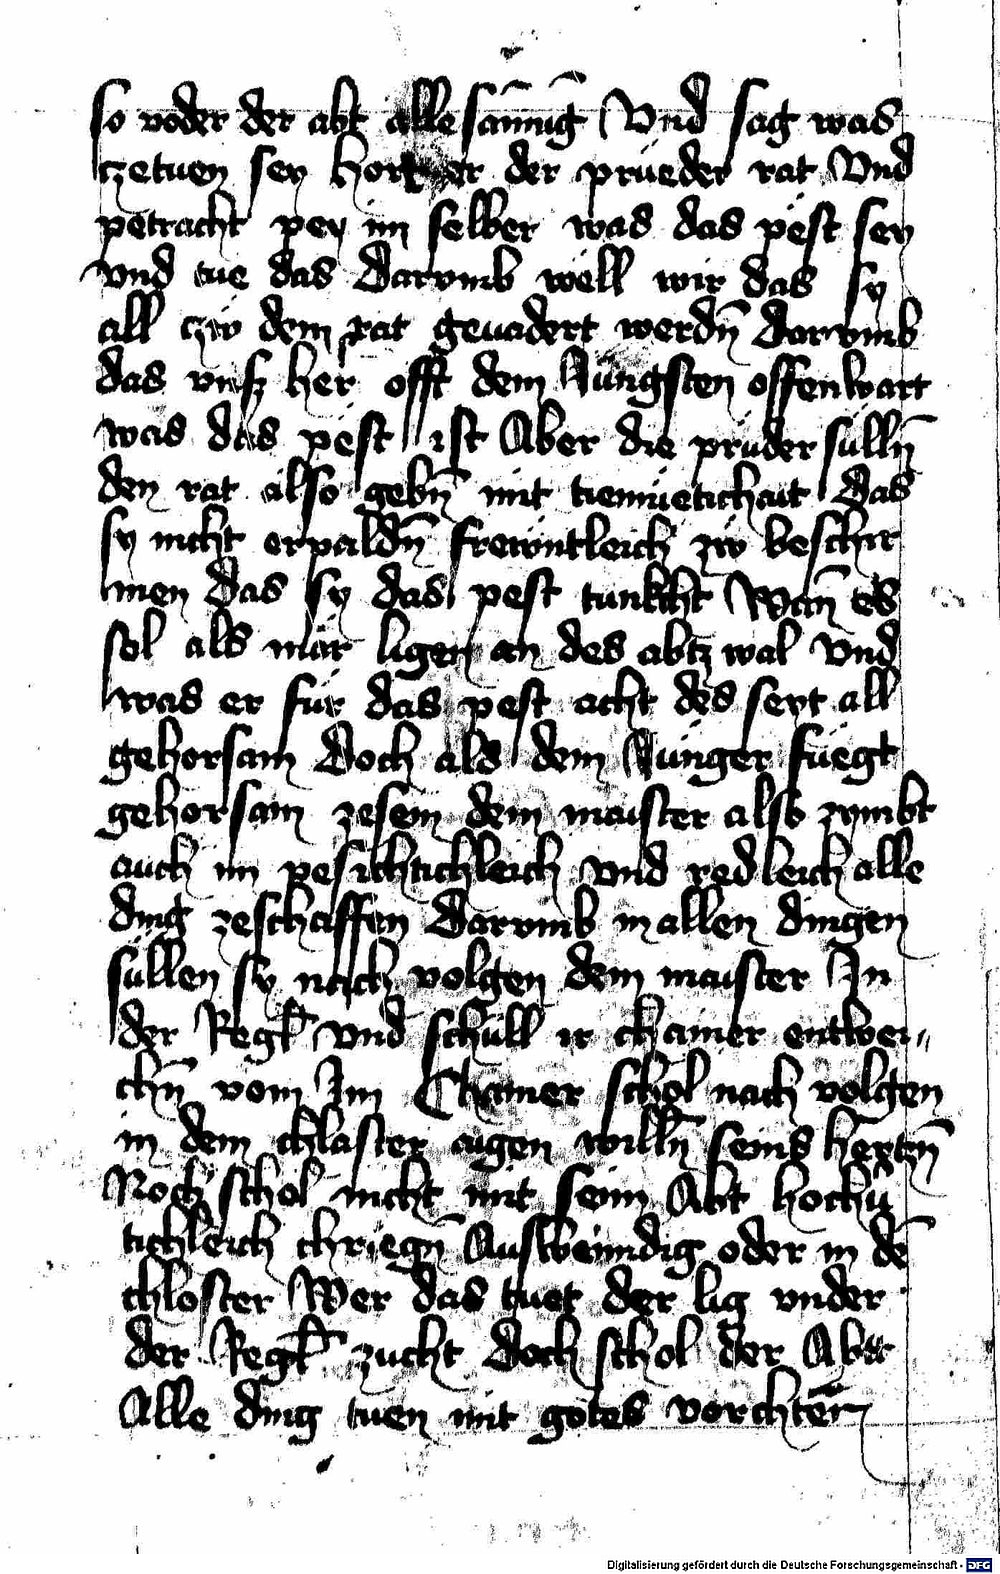 so voder der abt alle samūg Vnd sag was
czetuen sey Hort er der prüeder rat Vnd
petracht pey im selber was das pest sey
vnd tue das Darvmb well wir das sy
all czw dem rat geuadert werdn̄ Darvmb
das vnsz her offt dem Jüngsten offenwart
was das pest ist Aber die prüder sülln̄
den rat also gebn̄ mit tiemüetichait Das
sy nicht erpaldn̄ frewntleich zw beschir
men das sy das pest tunkcht Wan̄ es
sol als mär ligen an des abtz wal Vnd
was er für das pest acht des seyt all
gehorsam Doch als dem Jünger füegt
gehorsam zesein dem maister also zymbt
auch im pesichtichleich Vnd redleich alle
ding zeschaffen Darvmb in allen dingen
süllen sy nach volgen dem maister In
der Regl̄ Vnd schüll ir chainer entwei〃
chn̄ vom Im Chainer schol nach volgen
in dem chlaster aigen willn̄ seins hertzn̄
Noch schol nicht mit seim Abt hochü
tichleich chriegn̄ Auswenndig oder in dē
chloster Wer das tuet der lig vnder
der Regl̄ zucht Doch schol der Abtt
Alle ding tuen mit gotes vorchten̄
Digitalisierung gefördert durch die Deutsche Forschungsgemeinschaft - DFG